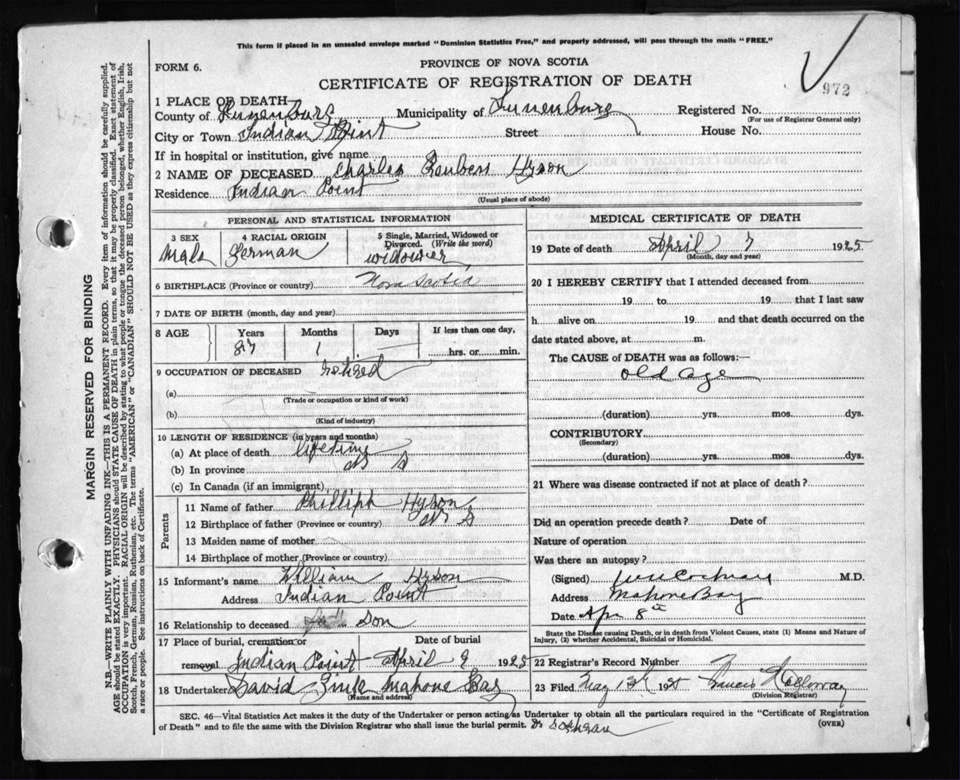 This form if placed in an unsealed envelope marked "Dominion Statistics Free," and properly addressed, will pass through the mails "FREE."
FORM 6.
PROVINCE OF NOVA SCOTIA
CERTIFICATE OF REGISTRATION OF DEATH
972
1 PLACE OF DEATH
County of Lunenburg Municipality of Lunenburg Registered No.
(For use of Registrar General only)
City or Town Indian Point Street House No.
If in hospital or institution, give name
2 NAME OF DECEASED Charles Reuben Hyson
Residence Indian Point
(Usual place of abode)
PERSONAL AND STATISTICAL INFORMATION
3 SEX Male
4 RACIAL ORIGIN German
5 Single, Married, Widowed or Divorced. (Write the word) widower
6 BIRTHPLACE (Province or country) Nova Scotia
7 DATE OF BIRTH (month, day and year)
8 AGE Years Months Days If less than one day,
87 1 — hrs. or min.
9 OCCUPATION OF DECEASED retired
(a)
(Trade or occupation or kind of work)
(b)
(Kind of industry)
10 LENGTH OF RESIDENCE (in years and months)
(a) At place of death lifetime
(b) In province N S
(c) In Canada (if an immigrant)
Parents
11 Name of father Philliph Hyson
12 Birthplace of father (Province or country) N S
13 Maiden name of mother
14 Birthplace of mother (Province or country)
15 Informant's name William Hyson
Address Indian Point
16 Relationship to deceased son
17 Place of burial, cremation or Date of burial
removal Indian Point April 9 1925
18 Undertaker David Zink Mahone Bay
(Name and address)
MEDICAL CERTIFICATE OF DEATH
19 Date of death April 7 1925
(Month, day and year)
20 I HEREBY CERTIFY that I attended deceased from
19 to 19 that I last saw
h alive on 19 and that death occurred on
date stated above, at m.
The CAUSE of DEATH was as follows:—
old age
(duration) yrs. mos. dys.
CONTRIBUTORY
(Secondary)
(duration) yrs. mos. dys.
21 Where was disease contracted if not at place of death?
Did an operation precede death? Date of
Nature of operation
Was there an autopsy?
(Signed) Cochran M.D.
Address Mahone Bay
Date Apr 8th
State the Disease causing Death, or in death from Violent Causes, state (1) Means and Nature of
Injury, (2) whether Accidental, Suicidal or Homicidal.
22 Registrar's Record Number
23 Filed 19 Holloway
(Division Registrar)
SEC. 46—Vital Statistics Act makes it the duty of the Undertaker or person acting as Undertaker to obtain all the particulars required in the "Certificate of Registration
of Death" and to file the same with the Division Registrar who shall issue the burial permit. Dr Cochran (OVER)
MARGIN RESERVED FOR BINDING
N.B.—WRITE PLAINLY WITH UNFADING INK—THIS IS A PERMANENT RECORD. Every item of information should be carefully supplied.
AGE should be stated EXACTLY. PHYSICIANS should STATE CAUSE OF DEATH in plain terms, so that it may be properly classified. Exact statement of
OCCUPATION is very important. RACIAL ORIGIN will be described by stating to what people or tongue the deceased person belonged, whether English, Irish,
Scotch, French, German, Russian, Ruthenian, etc. The terms "AMERICAN" or "CANADIAN" SHOULD NOT BE USED as they express citizenship but not
a race or people. See instructions on back of Certificate.